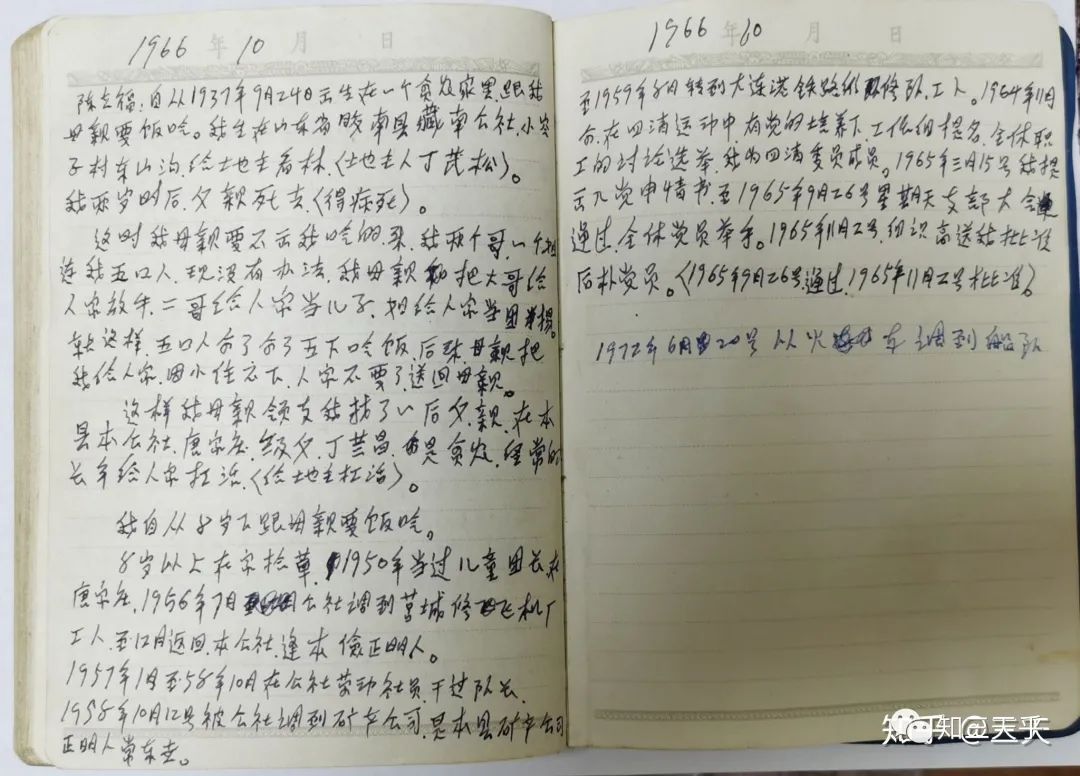 1966 年 10 月 日
陈立福,自从1937年9月24日出生在一个贫农家里,跟我
母亲要饭吃。我生在山东省胶南县藏南公社,小岺
子村东山沟,给土地主看林。(土也主人丁茂松)。
我两岁时后,父亲死去,(得病死)。
这时我母亲要不出我吃的来,我两个哥,一个姐
连我五口人,现没有办法,我母亲把大哥给
人家放牛,二哥给人家当儿子,姐给人家当团
就这样,五口人分了分了五下吃饭,后来,母亲把
我给人家,因小住不下,人家不要了,送回母亲。
这样我母亲领支我扶了以后父亲,在本
县本公社,唐家庄,继父,丁兰昌,也是贫农,经常的
长年给人家扛活,(给地主扛活)。
我自从8岁下跟母亲要饭吃。
8岁以上在家捡草,1950年当过儿童团长,在
唐家庄,1956年7月公社调到莒城修飞机厂
工人,至12月返回,本公社,逢本 俭正明人。
1957年1月至58年10月在公社劳动社员,干过队长,
1958年10月12号被公社调到矿产公司,是本县矿产公司
正明人常东圭。
1966 年 10 月 日
至1959年8月转到大连港铁路维修队,工人。1964年11月
分,在四清运动中,有党的培养下,工作组提名,全体职
工的讨论选举,我为四清委员成员。1965年三月15号我提
出入党申情书,至1965年9月26号星期天支部大会
通过,全体党员举手。1965年11月2号,组织高送我批准
后补党员。(1965年9月26号通过,1965年11月2号批准)
1972年6月20号从火车调到船队
知乎 @天乎